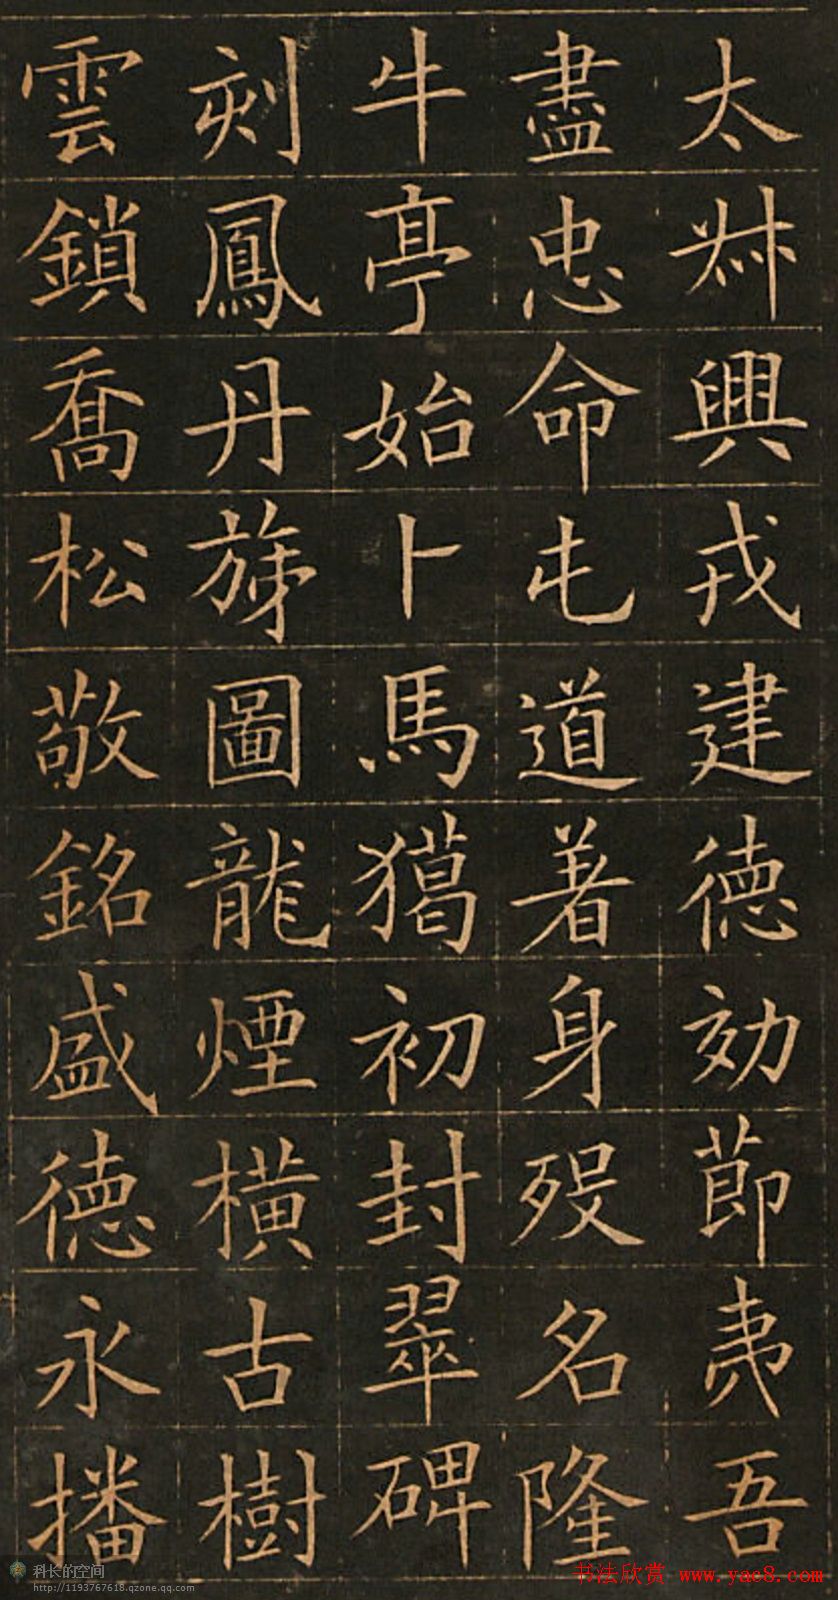 太叔興戎建德効節夷吾
盡忠命屯道著身殁名隆
牛亭始卜馬獦初封翠碑
刻鳳丹旐圖龍煙横古樹
雲鎖喬松敬銘盛德永播
科长的空间
http://1193767618.qzone.qq.com
书法欣赏 www.yac8.com